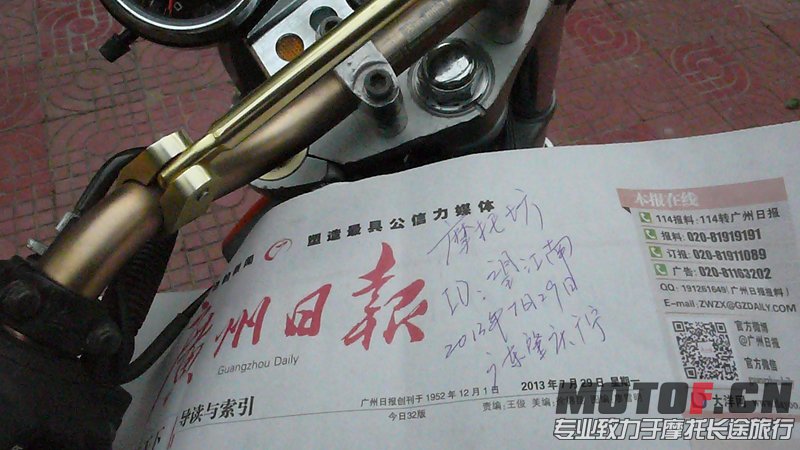 塑造最具公信力媒体
廣州日報
Guangzhou Daily
摩托坊
ID:望江南
2013年7月29日
广州日报创刊于1952年12月1日
2013年7月29日 星期一
今日32版
责编:王俊 美编:
导读与索引
本报在线
114报料:114转广州日报
报料:020-81919191
订报:020-81911089
广告:020-81163202
QQ:191281649(广州日报报料)
E-mail:ZWZX@GZDAILY.COM
官方微博
@广州日报
官方微信
大洋网
MOTOF.CN
专业致力于摩托长途旅行